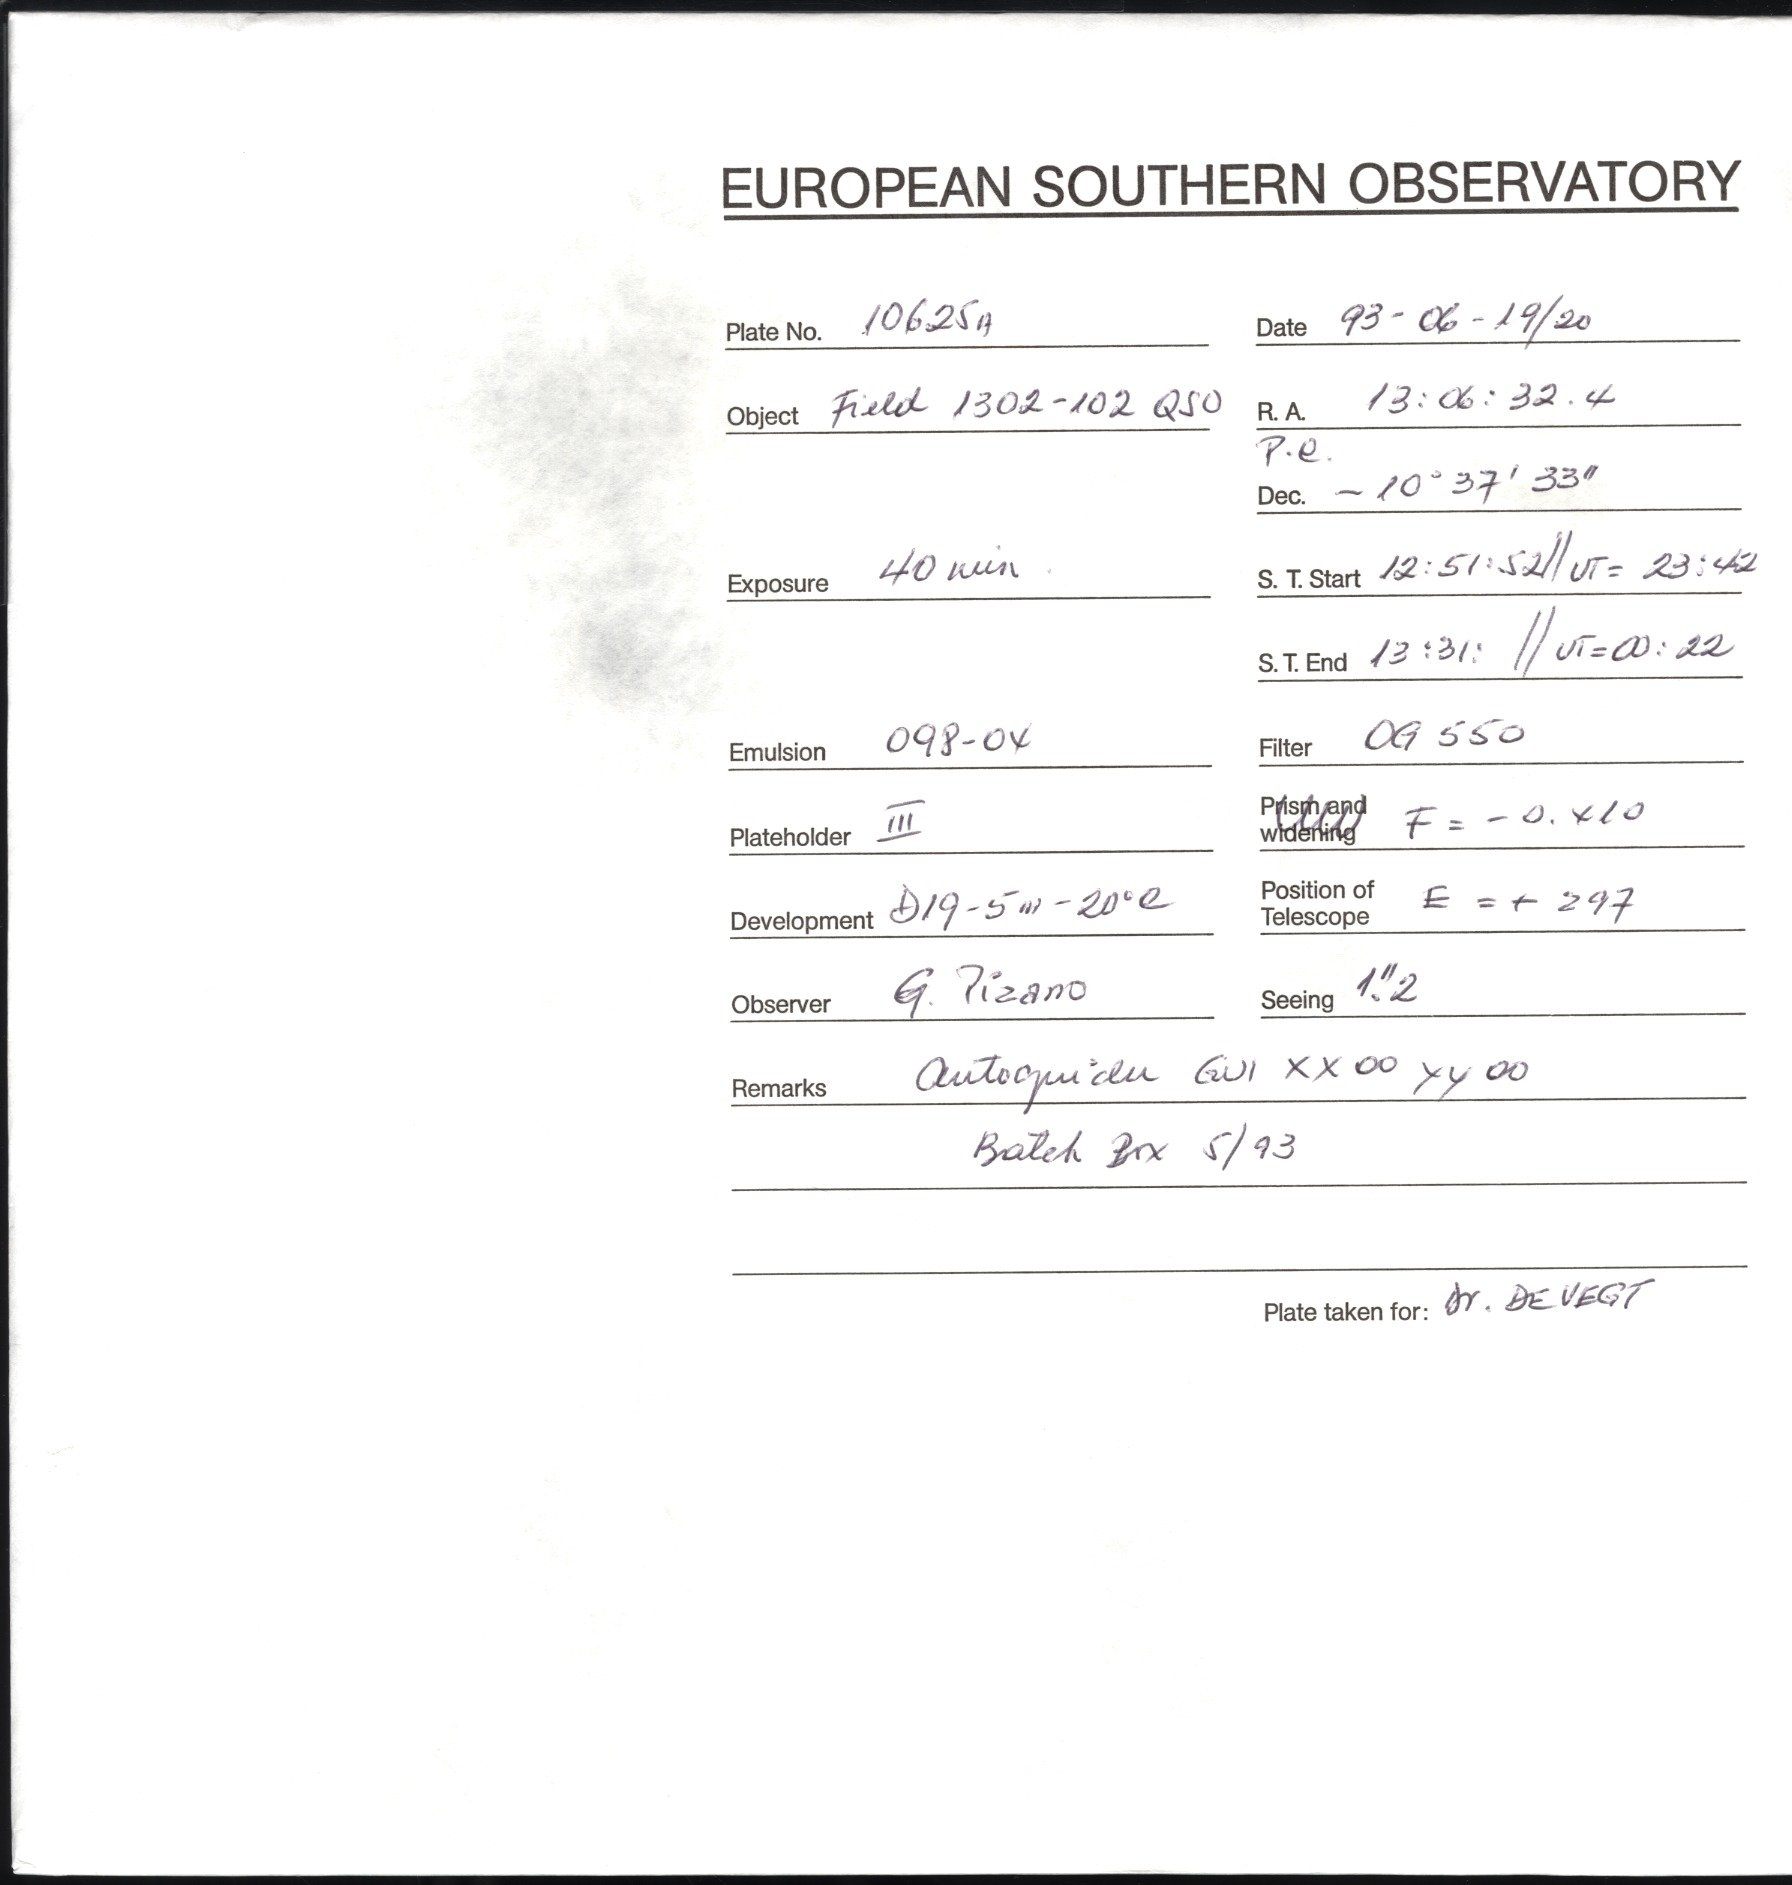 EUROPEAN SOUTHERN OBSERVATORY
Plate No. 10625A Date 93-06-19/20
Object Field 1302-102 QSO R. A. 13:06:32.4
P.e.
Dec. -10°37'33"
Exposure 40 min S. T. Start 12:51:52//UT= 23:42
S. T. End 13:31: //UT=00:22
Emulsion 098-04 Filter OG 550
Plateholder III Prism and widening F = -0.410
Development D19-5m-20°C Position of Telescope E = + 297
Observer G. Pizarro Seeing 1."2
Remarks Autoguider XX 00 YY 00
Batch Box 5/93
Plate taken for: Dr. DE VEGT